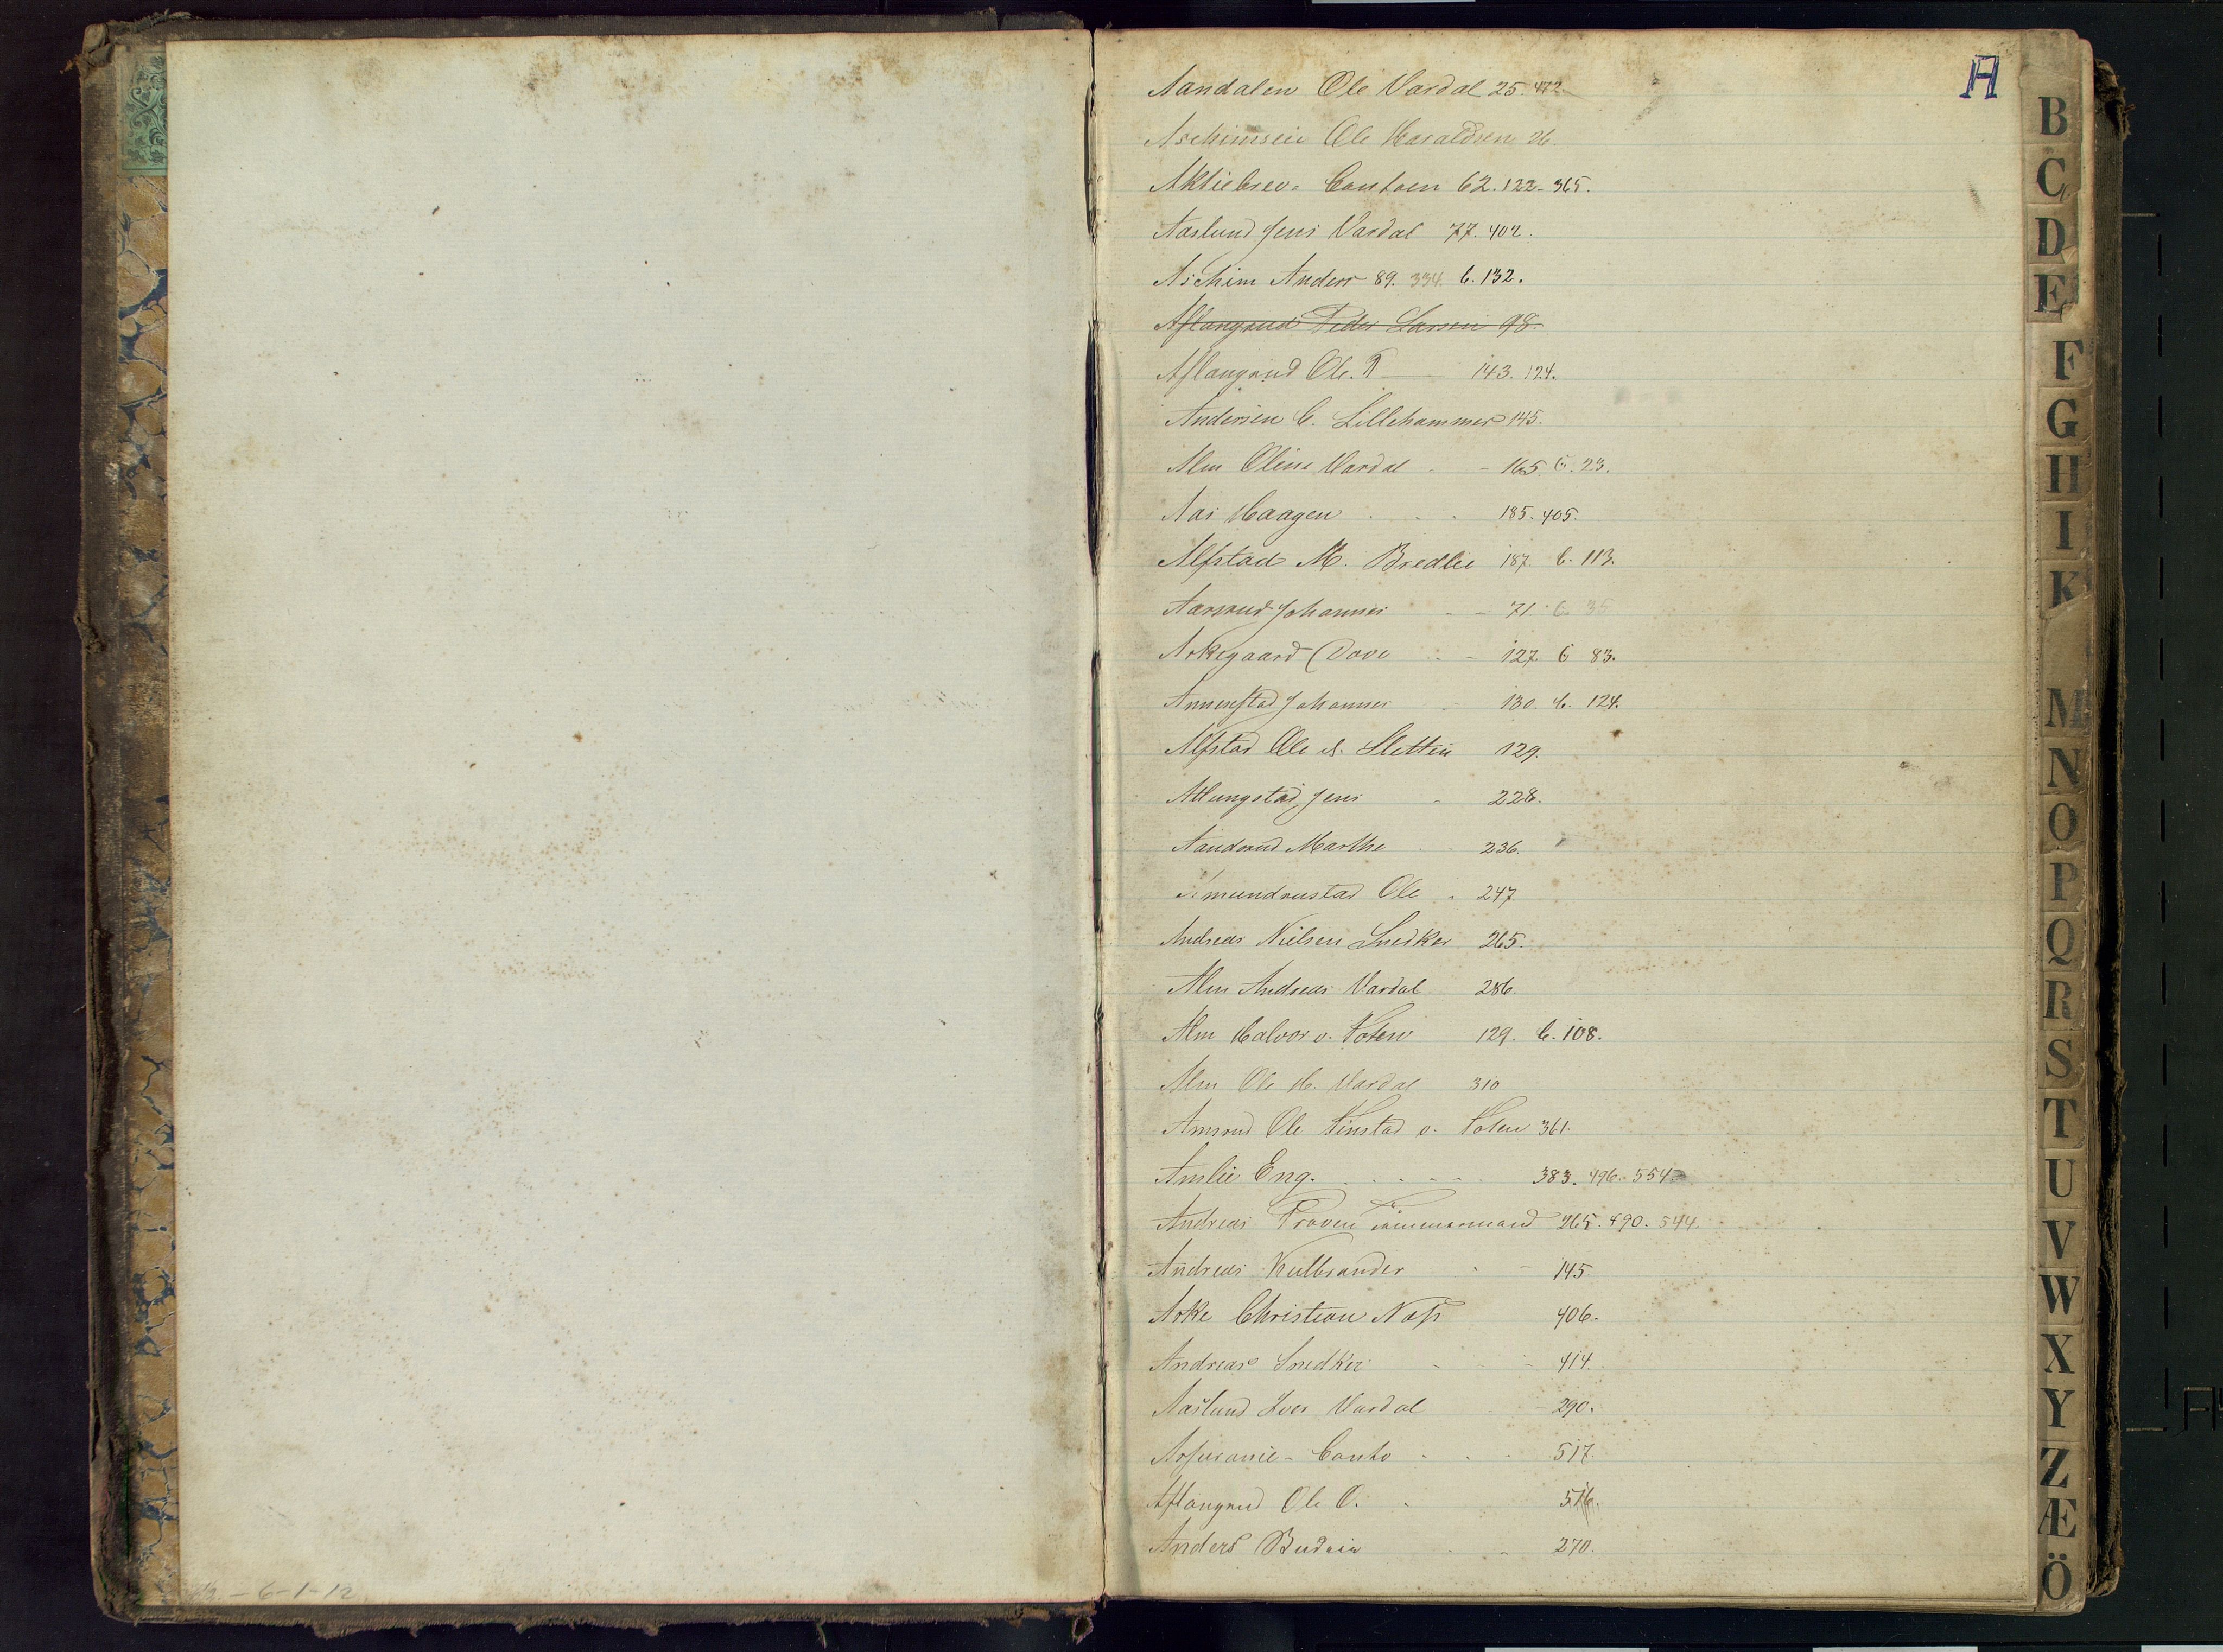 A
Aandalen Ole Vardal 25. 472
Aschimseie Ole Haraldsen 26.
Aktiebrev-Contoen 62. 122. 365.
Aaslund Jens Vardal 77. 402.
Aschim Anders 89. 334. C. 132.
Aflangrud Peder Larsen 98.
Aflangrud Ole. P 143. 124.
Andersen C. Lillehammer 145.
Alm Oline Vardal 165. C. 23.
Aas Haagen 185. 405.
Alfstad M. Bredlie 187. C. 113.
Aarsrud Johannes 71. C 35
Askegaard 127. C 83.
Annexstad Johannes 130. C. 124.
Alfstad Ole Sletten 129.
Allungstad, Jens 228.
Aanderud Marthe 236.
Amundrustad Ole 247.
Andreas Nielsen Snedker 265.
Alm Andreas Vardal 286.
Alm Halvor v. Toten 129. C. 108.
Alm Ole H. Vardal 310
Amsrud Ole Finstad v. Toten 361.
Amlie Eng. 383. 496. 554.
Andreas Proven Tømmermand 265. 490. 544.
Andreas Kulbrænder 145.
Aske Christian Næss 406.
Andreas Snedker 414.
Aaslund Iver Vardal 290.
Assurance-Conto 517.
Aflangrud Ole O. 516.
Anders Budeie 270.
B
C
D
E
F
G
H
I
K
M
N
O
P
Q
R
S
T
U
V
W
X
Y
Z
Æ
Ö
- 6-1-12